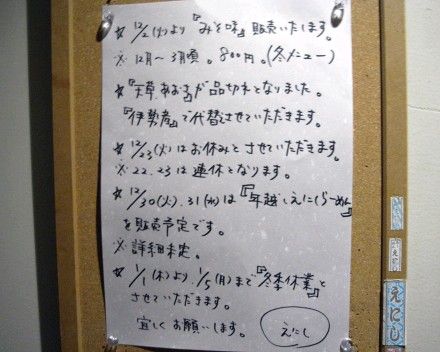 ☆ 12/2(火)より『みそ味』販売いたします。
※ 12月〜3月頃。800円。(冬メニュー)
☆『天草あおさ』が品切れとなりました。
『伊勢産』で代替させていただきます。
☆ 12/23(火)はお休みとさせていただきます。
※ 22.23は連休となります。
☆ 12/30(火).31(水)は『年越しえにしらーめん』
を販売予定です。
※ 詳細未定。
☆ 1/1(木)より 1/5(月)まで『冬季休業』と
させていただきます。
宜しくお願いします。
えにし
えにし